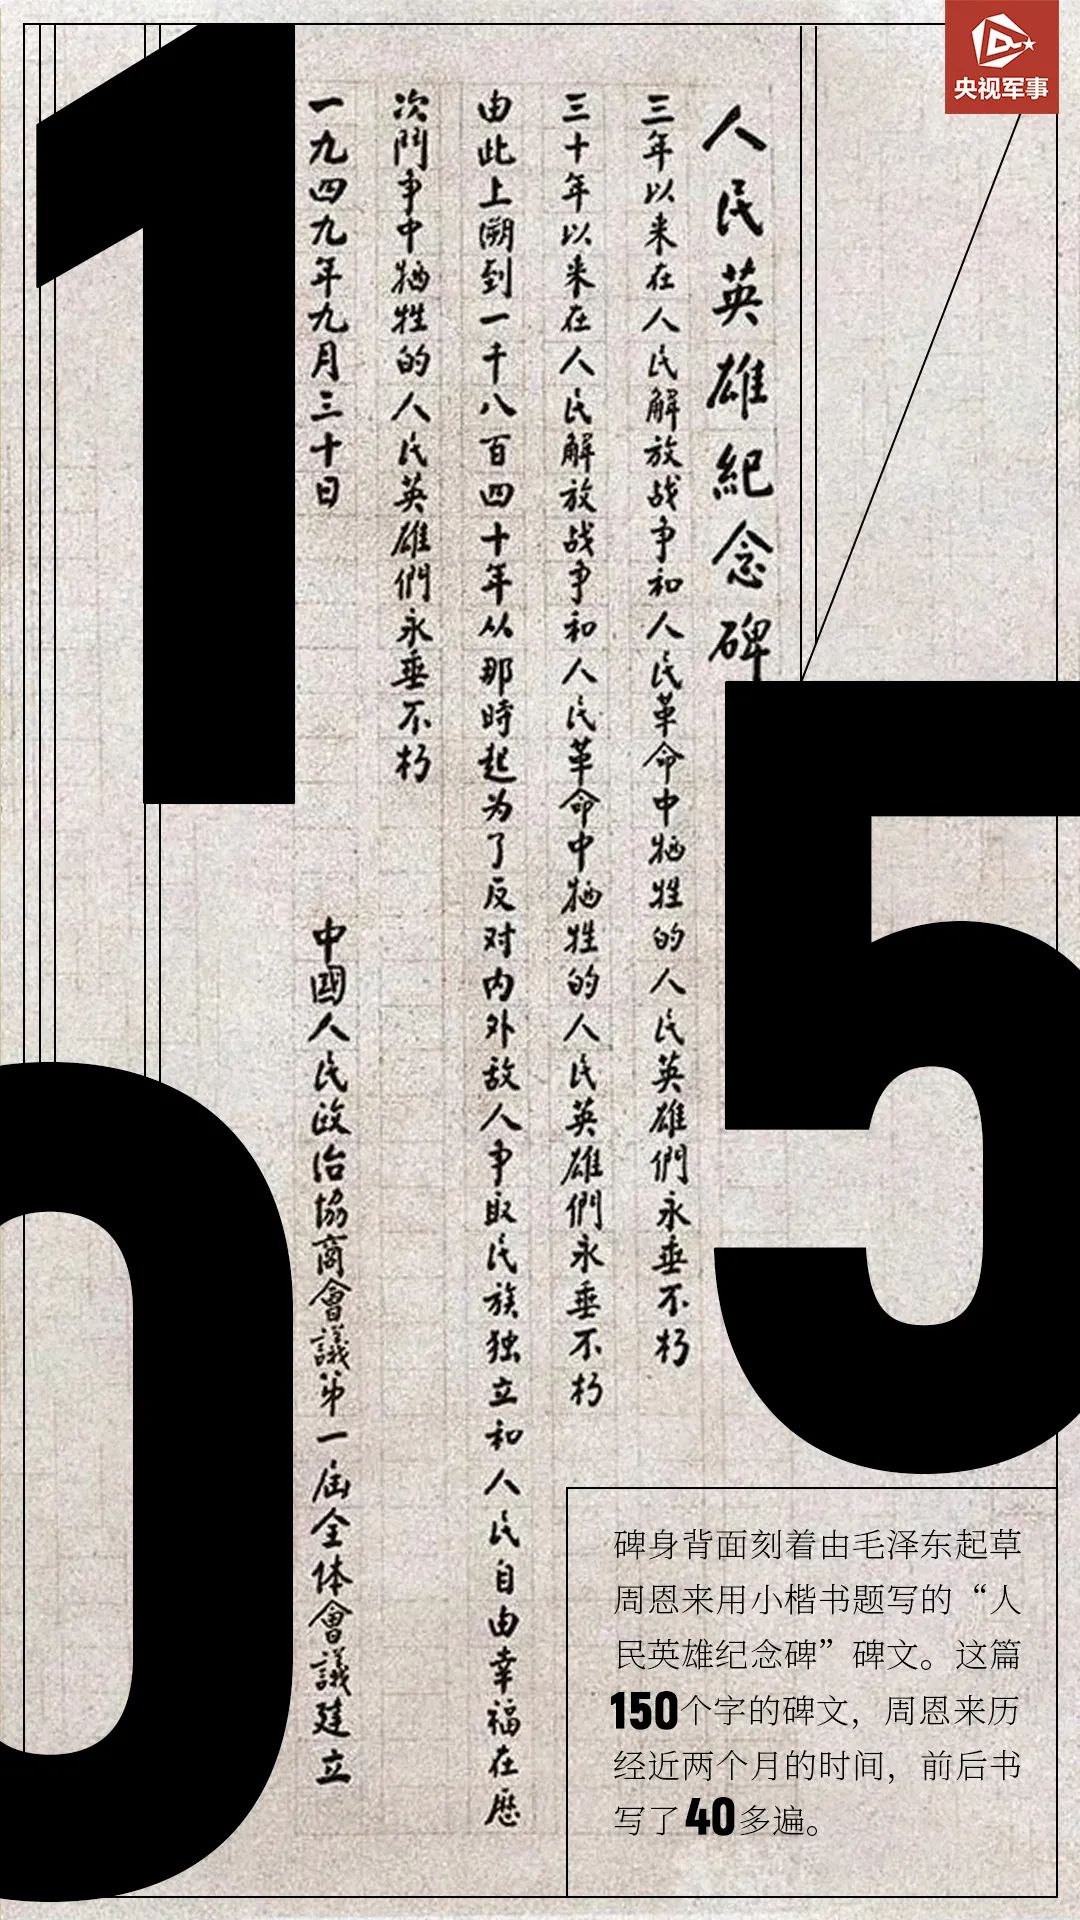 央视军事
人民英雄紀念碑
三年以来在人民解放战争和人民革命中牺牲的人民英雄們永垂不朽
三十年以来在人民解放战争和人民革命中牺牲的人民英雄們永垂不朽
由此上溯到一千八百四十年从那時起为了反对内外敌人争取民族独立和人民自由幸福在歷
次鬥争中牺牲的人民英雄們永垂不朽
一九四九年九月三十日
中國人民政治協商會議第一届全体會議建立
1
5
0
碑身背面刻着由毛泽东起草
周恩来用小楷书题写的“人
民英雄纪念碑”碑文。这篇
150个字的碑文，周恩来历
经近两个月的时间，前后书
写了40多遍。